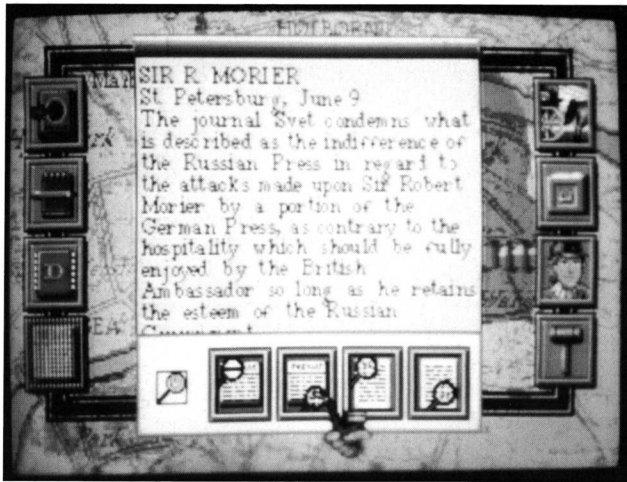 HOLBORN
SIR R. MORIER
St. Petersburg, June 9
The journal Svet condemns what
is described as the indifference of
the Russian Press in regard to
the attacks made upon Sir Robert
Morier by a portion of the
German Press, as contrary to the
hospitality which should be fully
enjoyed by the British
Ambassador so long as he retains
the esteem of the Russian
Government
D